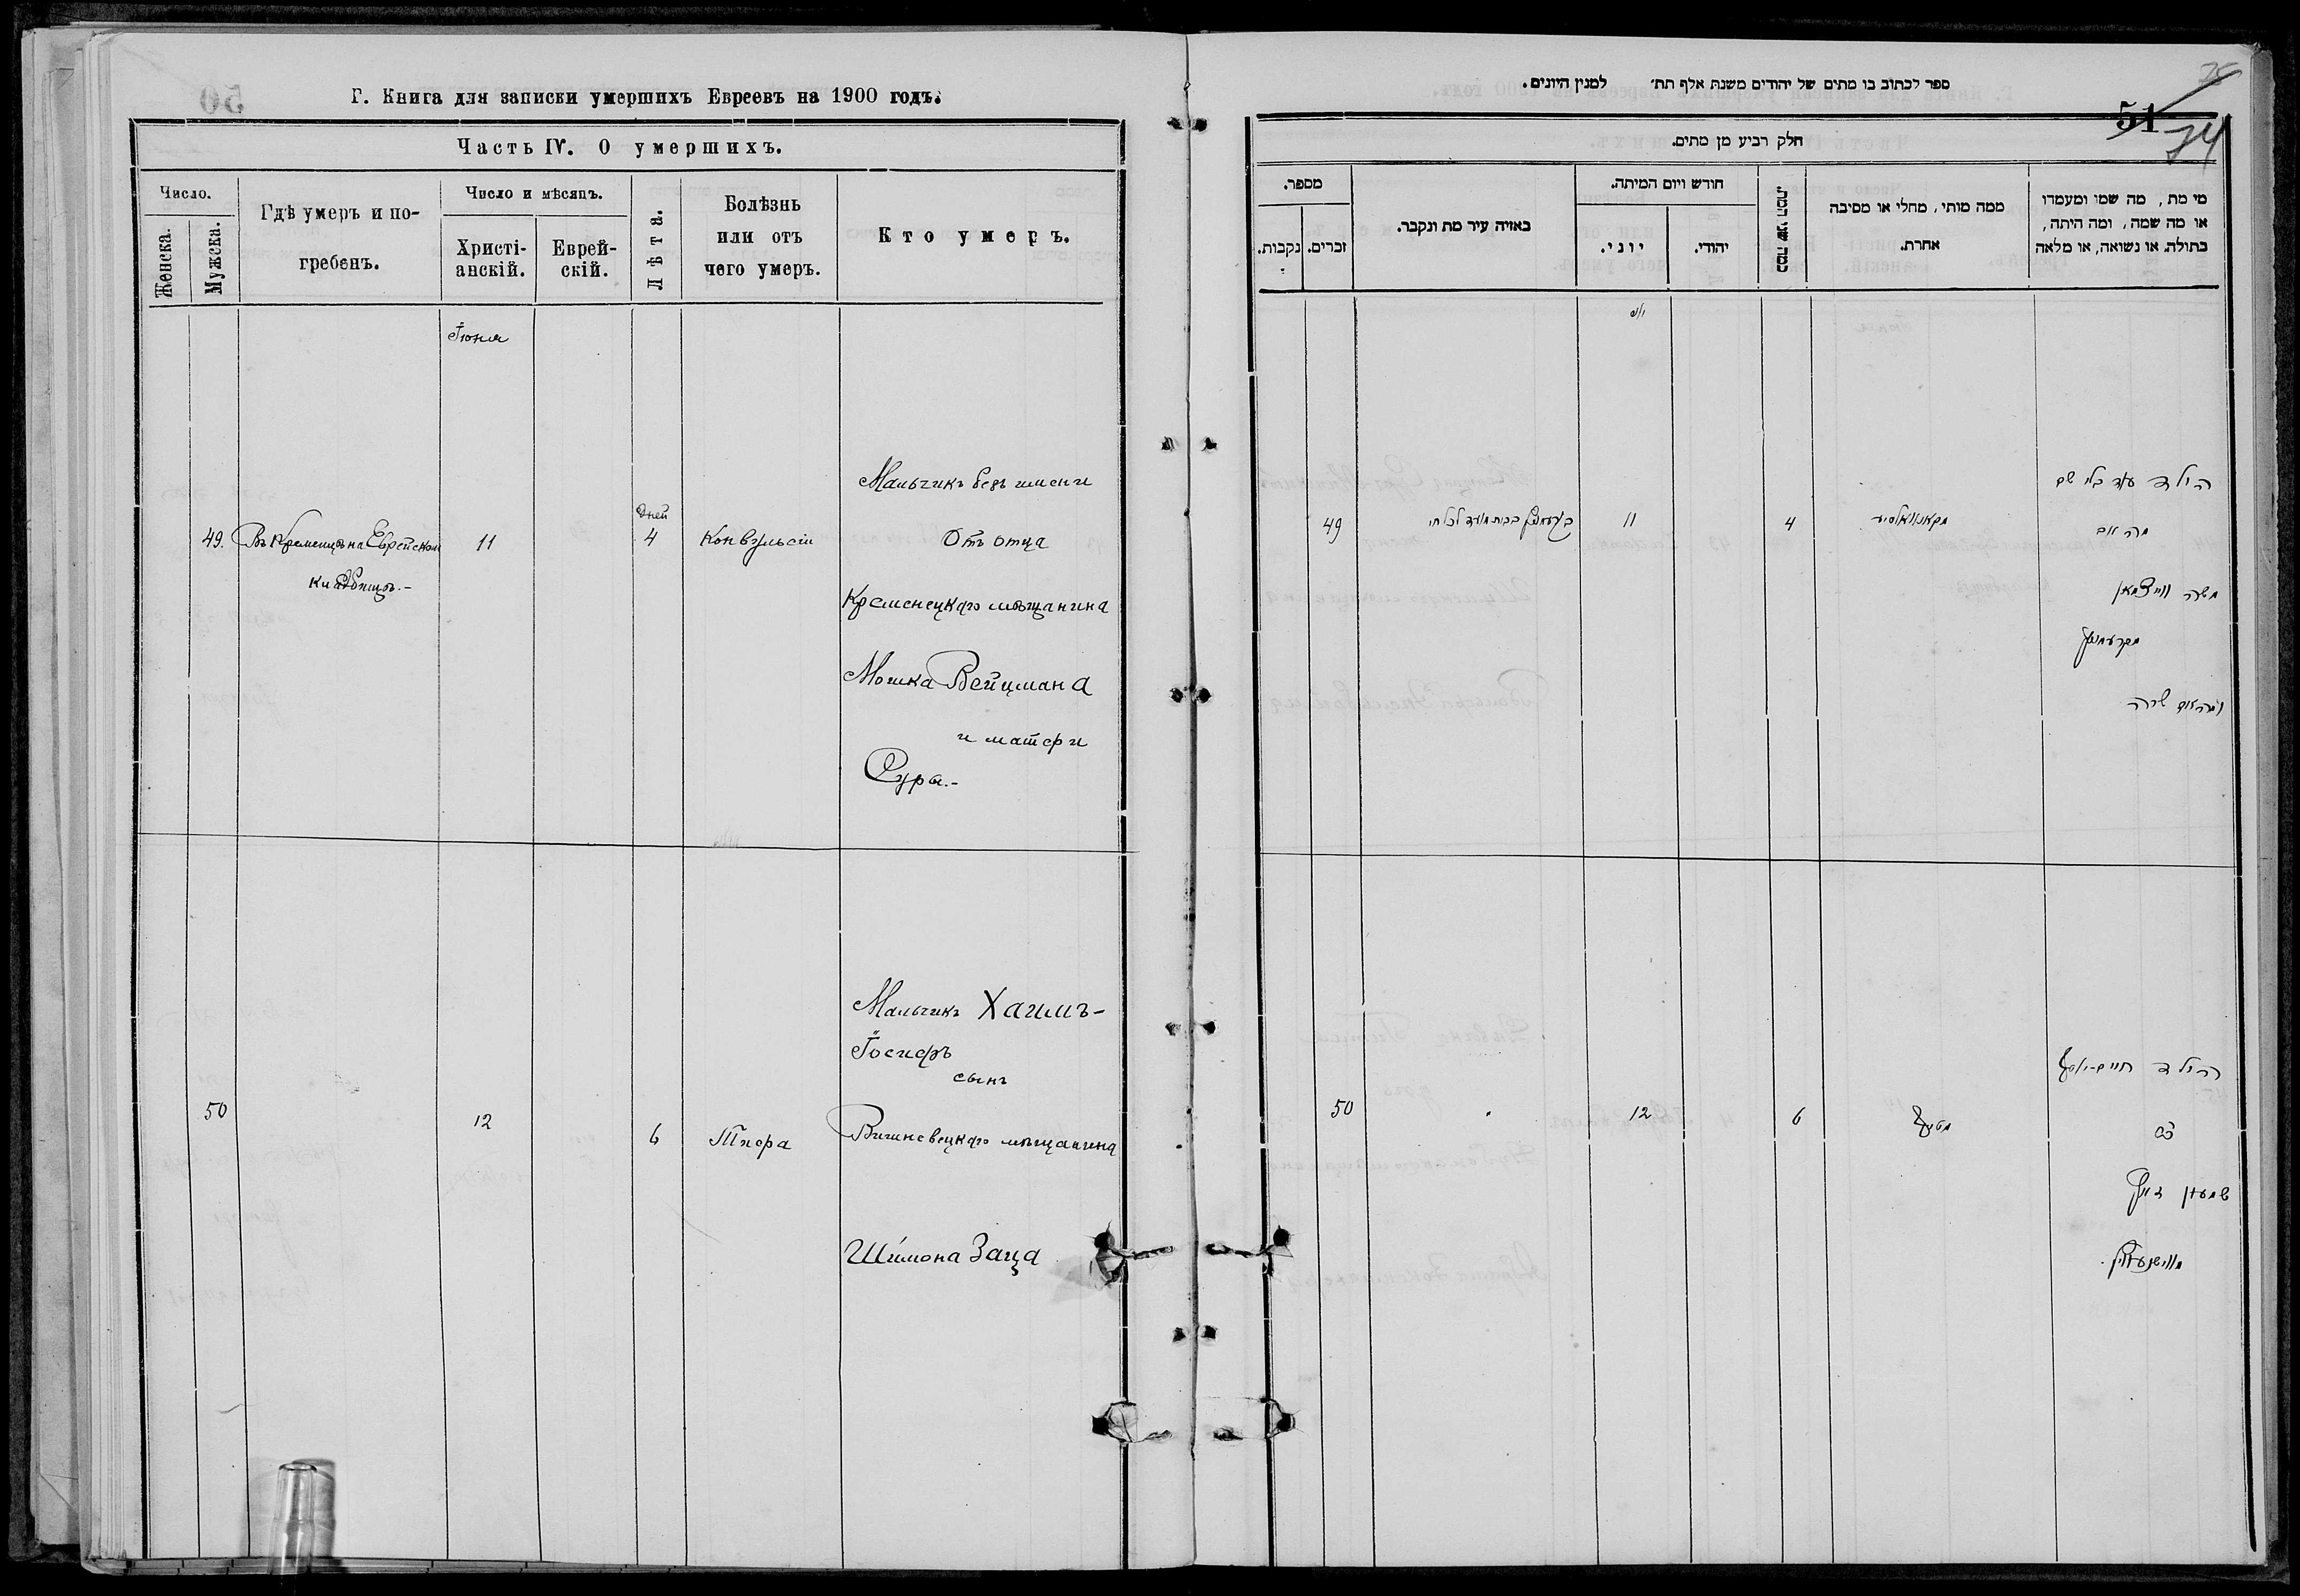 Г. Книга для записки умершихъ Евреевъ на 1900 годъ.
Часть IV. О умершихъ.
Число.
Женска.
Мужска.
Гдѣ умеръ и по-
гребенъ.
Число и мѣсяцъ.
Христі-
анскій.
Еврей-
скій.
Лѣта.
Болѣзнь
или отъ
чего умеръ.
Кто умеръ.
Іюня
49.
Въ Кременцѣ на Еврейском
кладбищѣ.-
11
дней
4
Конвульсіи
Мальчикъ безъ имени
Отъ отца
Кременецкаго мѣщанина
Мошка Вейцмана
и матери
Сура.-
50
12
6
Тифа
Мальчикъ Хаимъ-
Іосифъ
сынъ
Вишневецкаго мѣщанина
Шимона Заца
ספר לכתוב בו מתים של יהודים משנת אלף תת׳ למנין היונים.
51
74
חלק רביע מן מתים.
מספר.
נקבות.
זכרים.
באיזה עיר מת ונקבר.
חודש ויום המיתה.
יוני.
יהודי.
כמה שני המת.
ממה מותי, מחלי או מסיבה
אחרת.
מי מת, מה שמו ומעמדו
או מה שמה, ומה היתה,
בתולה או נשואה, או מלאה
49
11
4
הילד עוד בלי שם
משה ווייצמאן
שרה
50
12
6
הילד חיים-יוסף
בן
שמעון זייץ